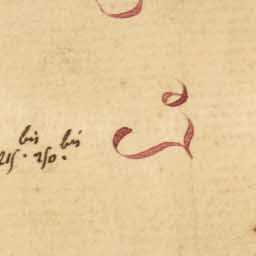 bis bis
215 . 250 .